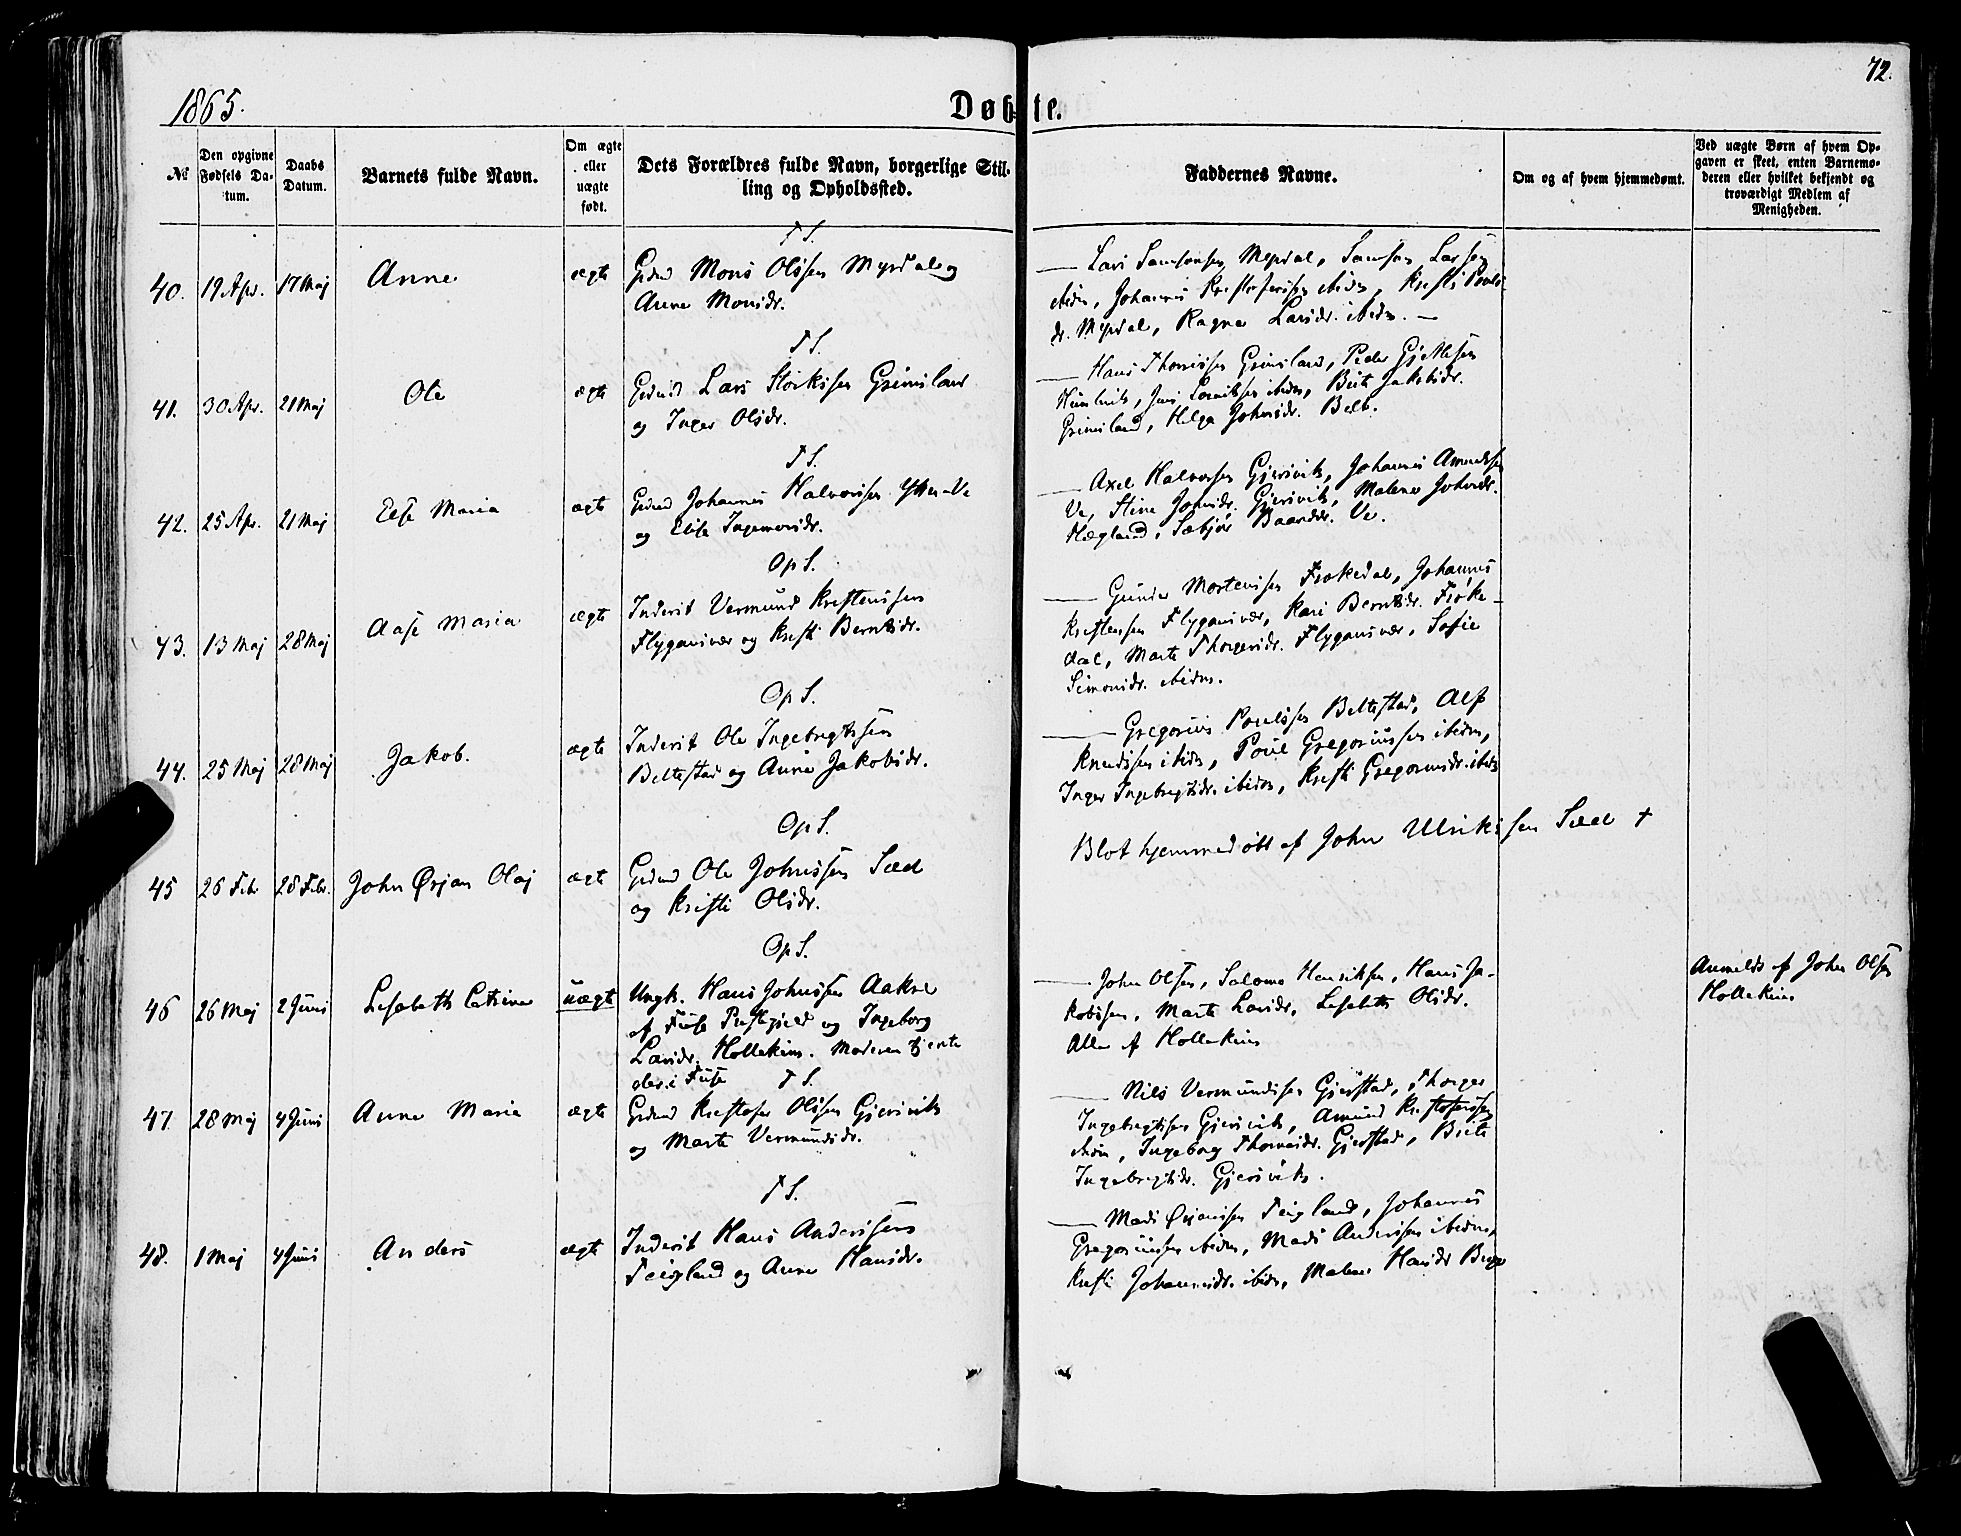 72.
1865.
Døbte.
№
Den opgivne Fødsels Datum.
Daabs Datum.
Barnets fulde Navn.
Om ægte eller uægte født.
Dets Forældres fulde Navn, borgerlige Stilling og Opholdssted.
Faddernes Navne.
Om og af hvem hjemmedøbt.
Ved uægte Børn af hvem Opgaven er skeet, enten Barnemoderen eller hvilket bekjendt og troværdigt Medlem af Menigheden.
T S.
40. 19 Apr. 17 Maj Anne ægte Gdmd Mons Olsen Myrdal og
Anne Monsdr.
Lars Samsonsen Myrdal, Samson Larsen
ibidm, Johannes Kristofersen ibidm, Kristi Pouls-
dr. Myrdal, Ragna Larsdr. ibidm.
T S.
41. 30 Apr. 21 Maj Ole ægte Gdmd Lars Størksen Grimsland
og Inger Olsdr.
Hans Thomsen Grimsland, Peder Gjertsen
ibidm, Brite Jakobsdr.
Grimsland, Helga Johnsdr.
T S.
42. 25 Apr. 21 Maj Else Maria ægte Gdmd Johannes Halvorsen Ytre-Ve
og Elise Ingemorsdr.
Axel Halvorsen Gjersvik, Johannes Amundsen
Ve, Stine Johnsdr. Gjersvik, Malene Johnsdr.
Hægland, Sæbjør Baardsdr. Ve.
Op S.
43. 13 Maj 28 Maj Aase Maria ægte Inderst Vermund Kristensen
Flygansvær og Kristi Berntsdr.
Gunder Mortensen Frøkedal, Johannes
Kristensen Flygansvær, Kari Berntsdr. Frøke-
dal, Marte Thorgersdr. Flygansvær, Sofie
Simonsdr. ibidm.
Op S.
44. 25 Maj 28 Maj Jakob. ægte Inderst Ole Ingebregtsen
Beltestad og Anne Jakobsdr.
Gregorius Poulsen Beltestad, Alf
Knudsen ibidm, Poul Gregoriussen ibidm,
Inger Ingebregtsdr. ibidm, Kristi Gregoriusdr. ibidm
Op S.
45 26 Febr 28 Febr. John Ørjan Olaj ægte Gdmd Ole Johnsen Sæd
og Kristi Olsdr.
Blot hjemmedøbt af John Ulriksen Sæd †
Op S.
46 26 Maj 2 Juni Lisabeth Catrine uægte Ungk. Hans Johnsen Aakre
af Fuse Prstgjeld og Ingeborg
Larsdr. Hollekim. Moderen tjente
der i Fuse
John Olsen, Salomo Henriksen, Hans Ja-
kobsen, Marta Larsdr, Lisabeth Olsdr.
Alle af Hollekim
Anmeldt af John Olsen
Hollekim
T S.
47. 28 Maj 4 Juni Anne Maria ægte Gdmd Kristofer Olsen Gjersvik
og Marte Vermundsdr.
Nils Vermundsen Gjerstad, Thorger
Ingebregtsen Gjersvik, Amund Kristofersen
ibidm, Ingeborg Thomasdr. Gjerstad, Brite
Ingebregtsdr. Gjersvik.
T S.
48. 1 Maj 4 Juni Anders ægte Inderst Hans Anderssen
Teigland og Anne Hansdr.
Mads Ørjansen Teigland, Johannes
Gregoriussen ibidm, Mads Andersen ibidm,
Kristi Johannesdr. ibidm, Malene Hansdr